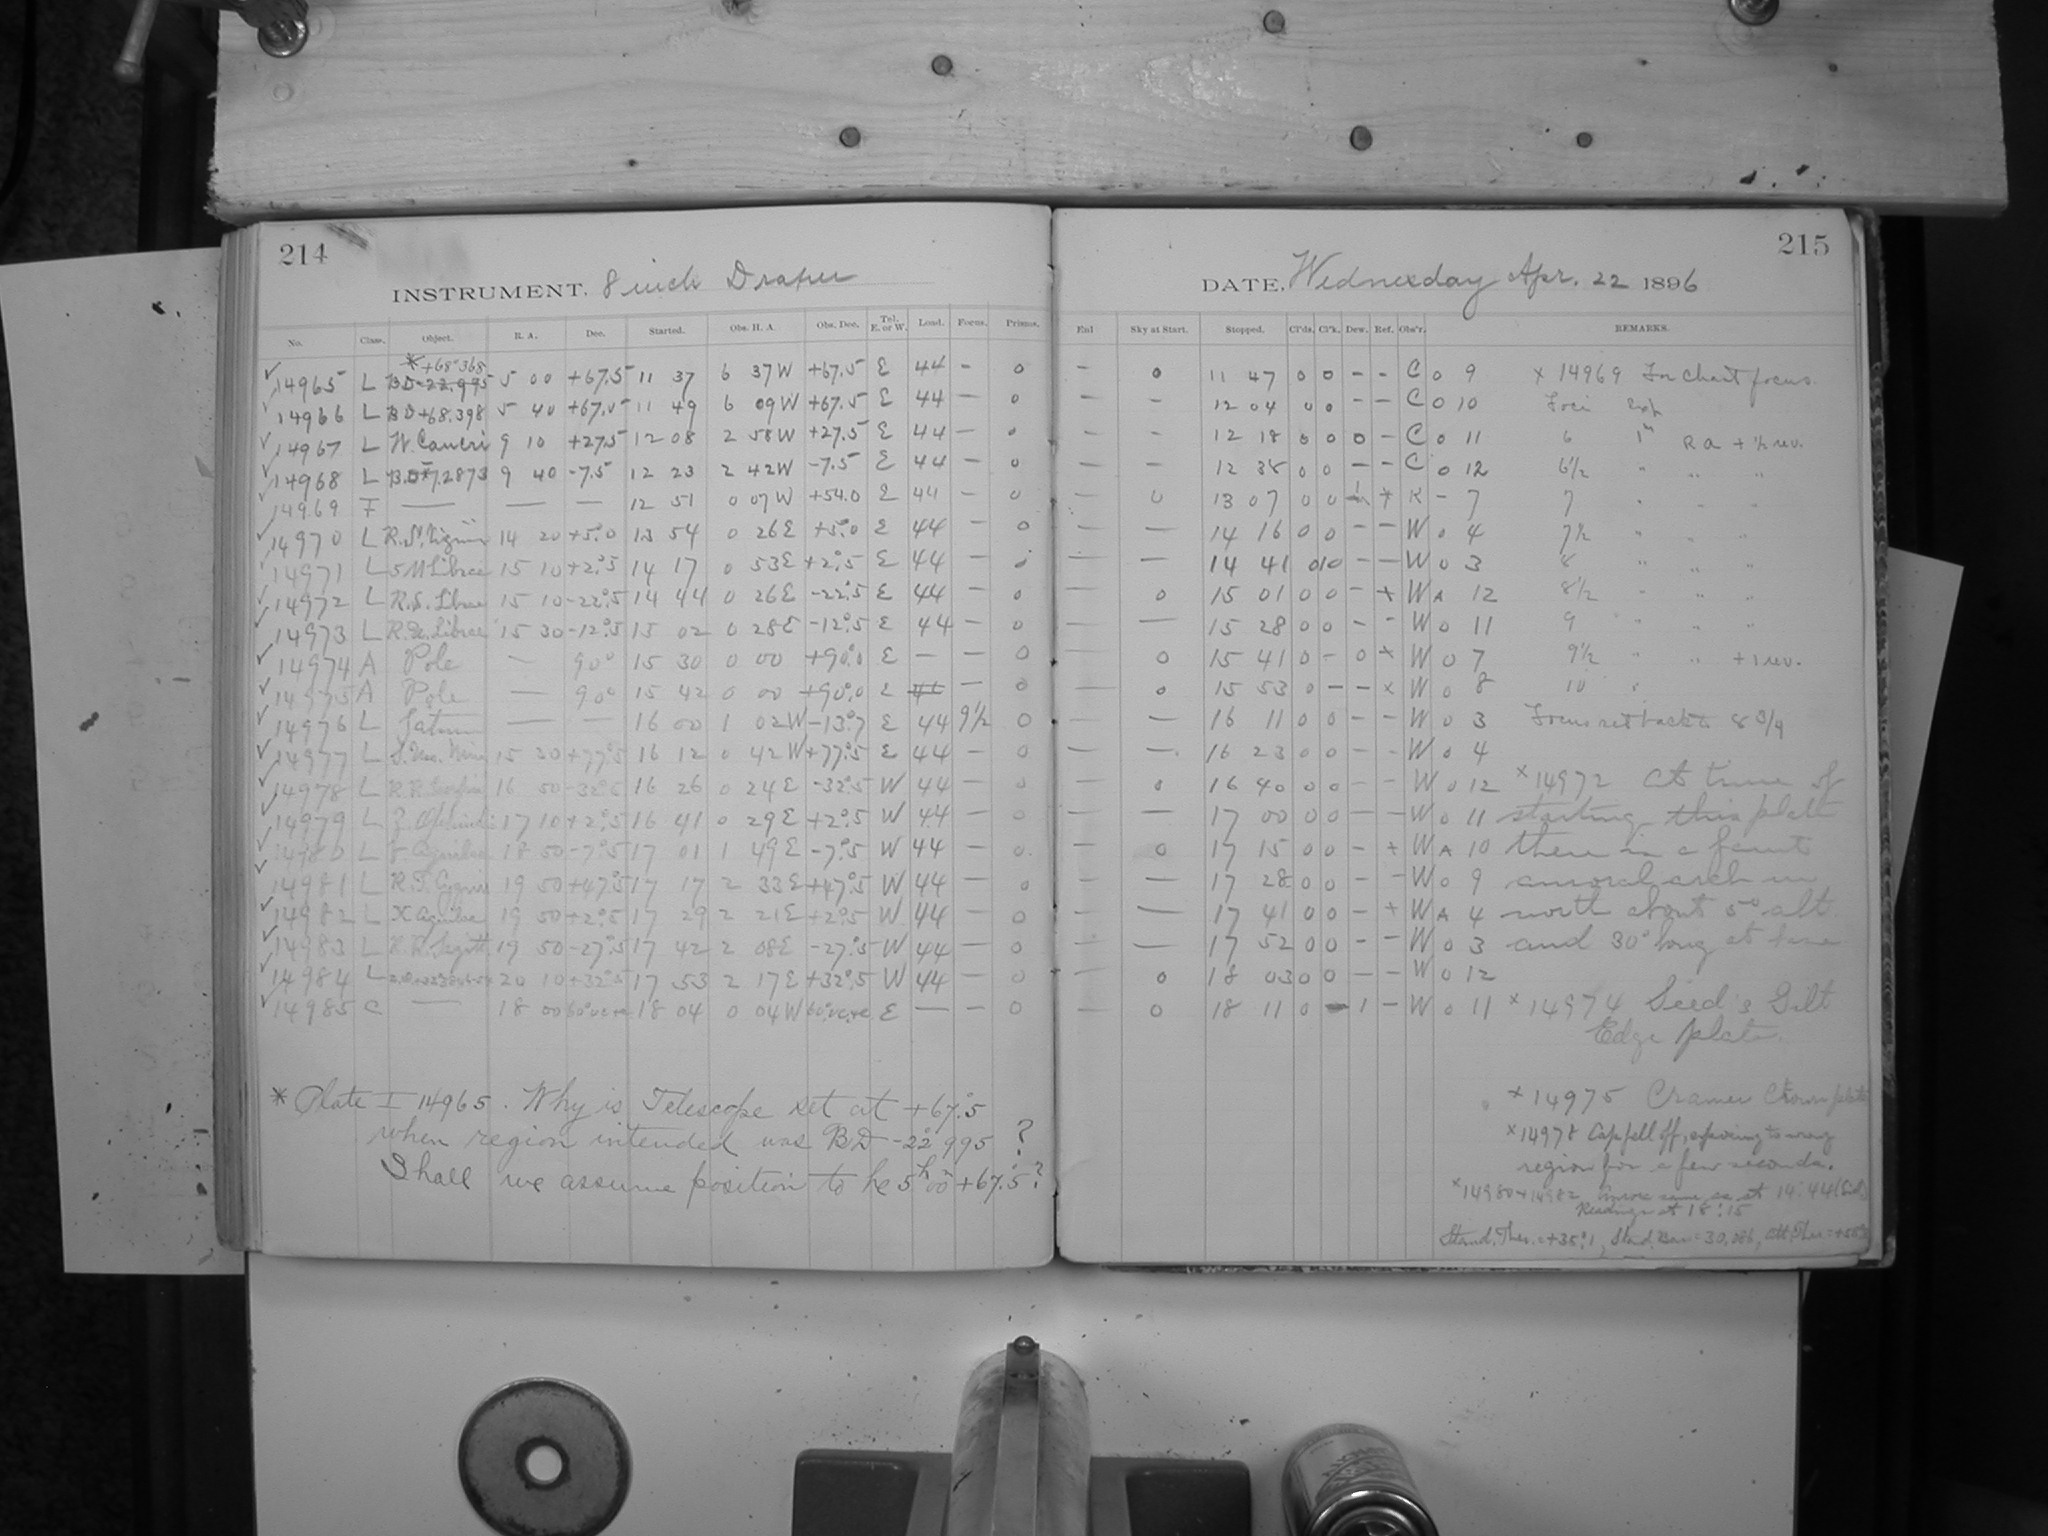 214
INSTRUMENT. 8 inch Draper
No. Class. Object. R. A. Dec. Started. Obs. H. A. Obs. Dec. Tel. E. or W. Load. Focus. Prisms.
* +68°368
14965 L BD-22.995 5 00 +67.5 11 37 6 37W +67.5 E 44 – 0
14966 L BD+68.398 5 40 +67.5 11 49 6 09W +67.5 E 44 – 0
14967 L W. Cancri 9 10 +27.5 12 08 2 58W +27.5 E 44 – 0
14968 L 9 40 -7.5 12 23 2 42W -7.5 E 44 – 0
14969 F — — — 12 51 0 07W +54.0 E 44 – 0
14970 L 14 20 +5.0 13 54 0 26E +5.0 E 44 – 0
14971 L 15 10 +2.5 14 17 0 53E +2.5 E 44 –
14972 L R.S. Librae 15 10 -22.5 14 44 0 26E -22.5 E 44 – 0
14973 L R.U. Librae 15 30 -12.5 15 02 0 28E -12.5 E 44 – 0
14974 A Pole — 90° 15 30 0 00 +90.0 E — – 0
14975 A Pole — 90° 15 42 0 00 +90.0 E 44 – 0
14976 L Saturn — — 16 00 1 02W -13.7 E 44 9½ 0
14977 L S. Urs. Min. 15 30 +77.5 16 12 0 42W +77.5 E 44 – 0
14978 L R.R. Scorpii 16 50 -32.5 16 26 0 24E -32.5 W 44 – 0
14979 L Z. Ophiuchi 17 10 +2.5 16 41 0 29E +2.5 W 44 – 0
14980 L Aquilae 18 50 -7.5 17 01 1 49E -7.5 W 44 – 0
14981 L R.T. Cygni 19 50 +47.5 17 17 2 33E +47.5 W 44 – 0
14982 L X Aquilae 19 50 +2.5 17 29 2 21E +2.5 W 44 – 0
14983 L R.R. Sagitt. 19 50 -27.5 17 42 2 08E -27.5 W 44 – 0
14984 L 20 10 +32.5 17 53 2 17E +32.5 W 44 – 0
14985 C — 18 00 18 04 0 04W E — – 0
* Plate I 14965. Why is Telescope set at +67.5
when region intended was BD -22°995 ?
Shall we assume position to be 5h 00m +67.5?
215
DATE, Wednesday Apr. 22 1896
End Sky at Start. Stopped. Cl'ds. Cl'k. Dew. Ref. Obs'r. REMARKS.
– 0 11 47 0 0 – – C 0 9 × 14969 For Chart focus.
– – 12 04 0 0 – – C 0 10 Foci Exp
– – 12 18 0 0 0 – C 0 11 6 1m R a + ½ rev.
– – 12 38 0 0 – – C 0 12 6½ " " "
— 0 13 07 0 0 K – 7 7 " " "
— — 14 16 0 0 – – W 0 4 7½ " " "
— — 14 41 – – W 0 3 8 " " "
— 0 15 01 0 0 – × W A 12 8½ " " "
— — 15 28 0 0 – – W 0 11 9 " " "
— 0 15 41 0 – 0 × W 0 7 9½ " " + 1 rev.
— 0 15 53 0 – – × W 0 8 10 "
— — 16 11 0 0 – – W 0 3 Focus set back to 8 3/4
— — 16 23 0 0 – – W 0 4
0 16 40 0 0 – – W 0 12 ×14972 At time of
— — 17 00 0 0 – – W 0 11 starting this plate
— 0 17 15 0 0 – × W A 10 there is a faint
— — 17 28 0 0 – – W 0 9 auroral arch in
— — 17 41 0 0 – × W A 4 north about 5° alt.
— — 17 52 0 0 – – W 0 3 and 30° long at base
— 0 18 03 0 0 – – W 0 12
— 0 18 11 0 – 1 – W 0 11 ×14974 Seed's Gilt
Edge plate.
×14975 Cramer Crown plate
×14978 Cap fell off, exposing to wrong
region for a few seconds.
×14980+14982 Aurora same as at 14:44 (Sid)
Readings at 18:15
Stand. Ther. = +35.1, Stand. Bar. = 30.086, Att. Ther. =